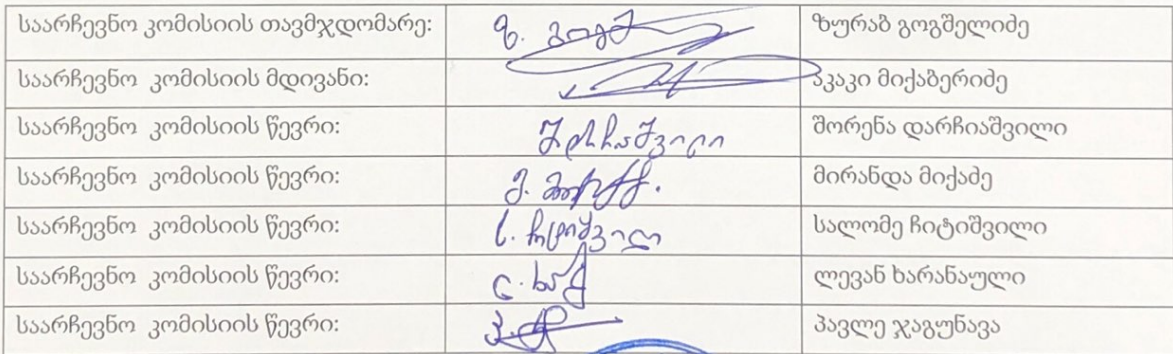 საარჩევნო კომისიის თავმჯდომარე: ზ. გოგშ ზურაბ გოგშელიძე
საარჩევნო კომისიის მდივანი: აკაკი მიქაბერიძე
საარჩევნო კომისიის წევრი: შორენა დარჩიაშვილი
საარჩევნო კომისიის წევრი: მ. მირანდა მიქაძე
საარჩევნო კომისიის წევრი: ს. სალომე ჩიტიშვილი
საარჩევნო კომისიის წევრი: ლ. ლევან ხარანაული
საარჩევნო კომისიის წევრი: პ. პავლე ჯაგუნავა